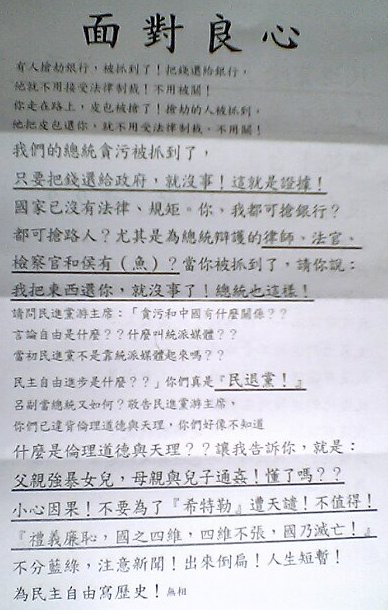 面對良心
有人搶劫銀行，被抓到了！把錢還給銀行，
他就不用接受法律制裁！不用被關！
你走在路上，皮包被搶了！搶劫的人被抓到，
他把皮包還你，就不用受法律制裁、不用關！
我們的總統貪污被抓到了，
只要把錢還給政府，就沒事！這就是證據！
國家已沒有法律、規矩。你、我都可搶銀行？
都可搶路人？尤其是為總統辯護的律師、法官、
檢察官和侯有（魚）？當你被抓到了，請你說：
我把東西還你，就沒事了！總統也這樣！
請問民進黨游主席：「貪污和中國有什麼關係？？
言論自由是什麼？？什麼叫統派媒體？？
當初民進黨不是靠統派媒體起來嗎？？
民主自由進步是什麼？？」你們真是『民退黨！』
呂副當總統又如何？敬告民進黨游主席，
你們已違背倫理道德與天理，你們好像不知道
什麼是倫理道德與天理？？讓我告訴你，就是：
父親強暴女兒，母親與兒子通姦！懂了嗎？？
小心因果！不要為了『希特勒』遭天譴！不值得！
『禮義廉恥，國之四維，四維不張，國乃滅亡！』
不分藍綠，注意新聞！出來倒扁！人生短暫！
為民主自由寫歷史！無相